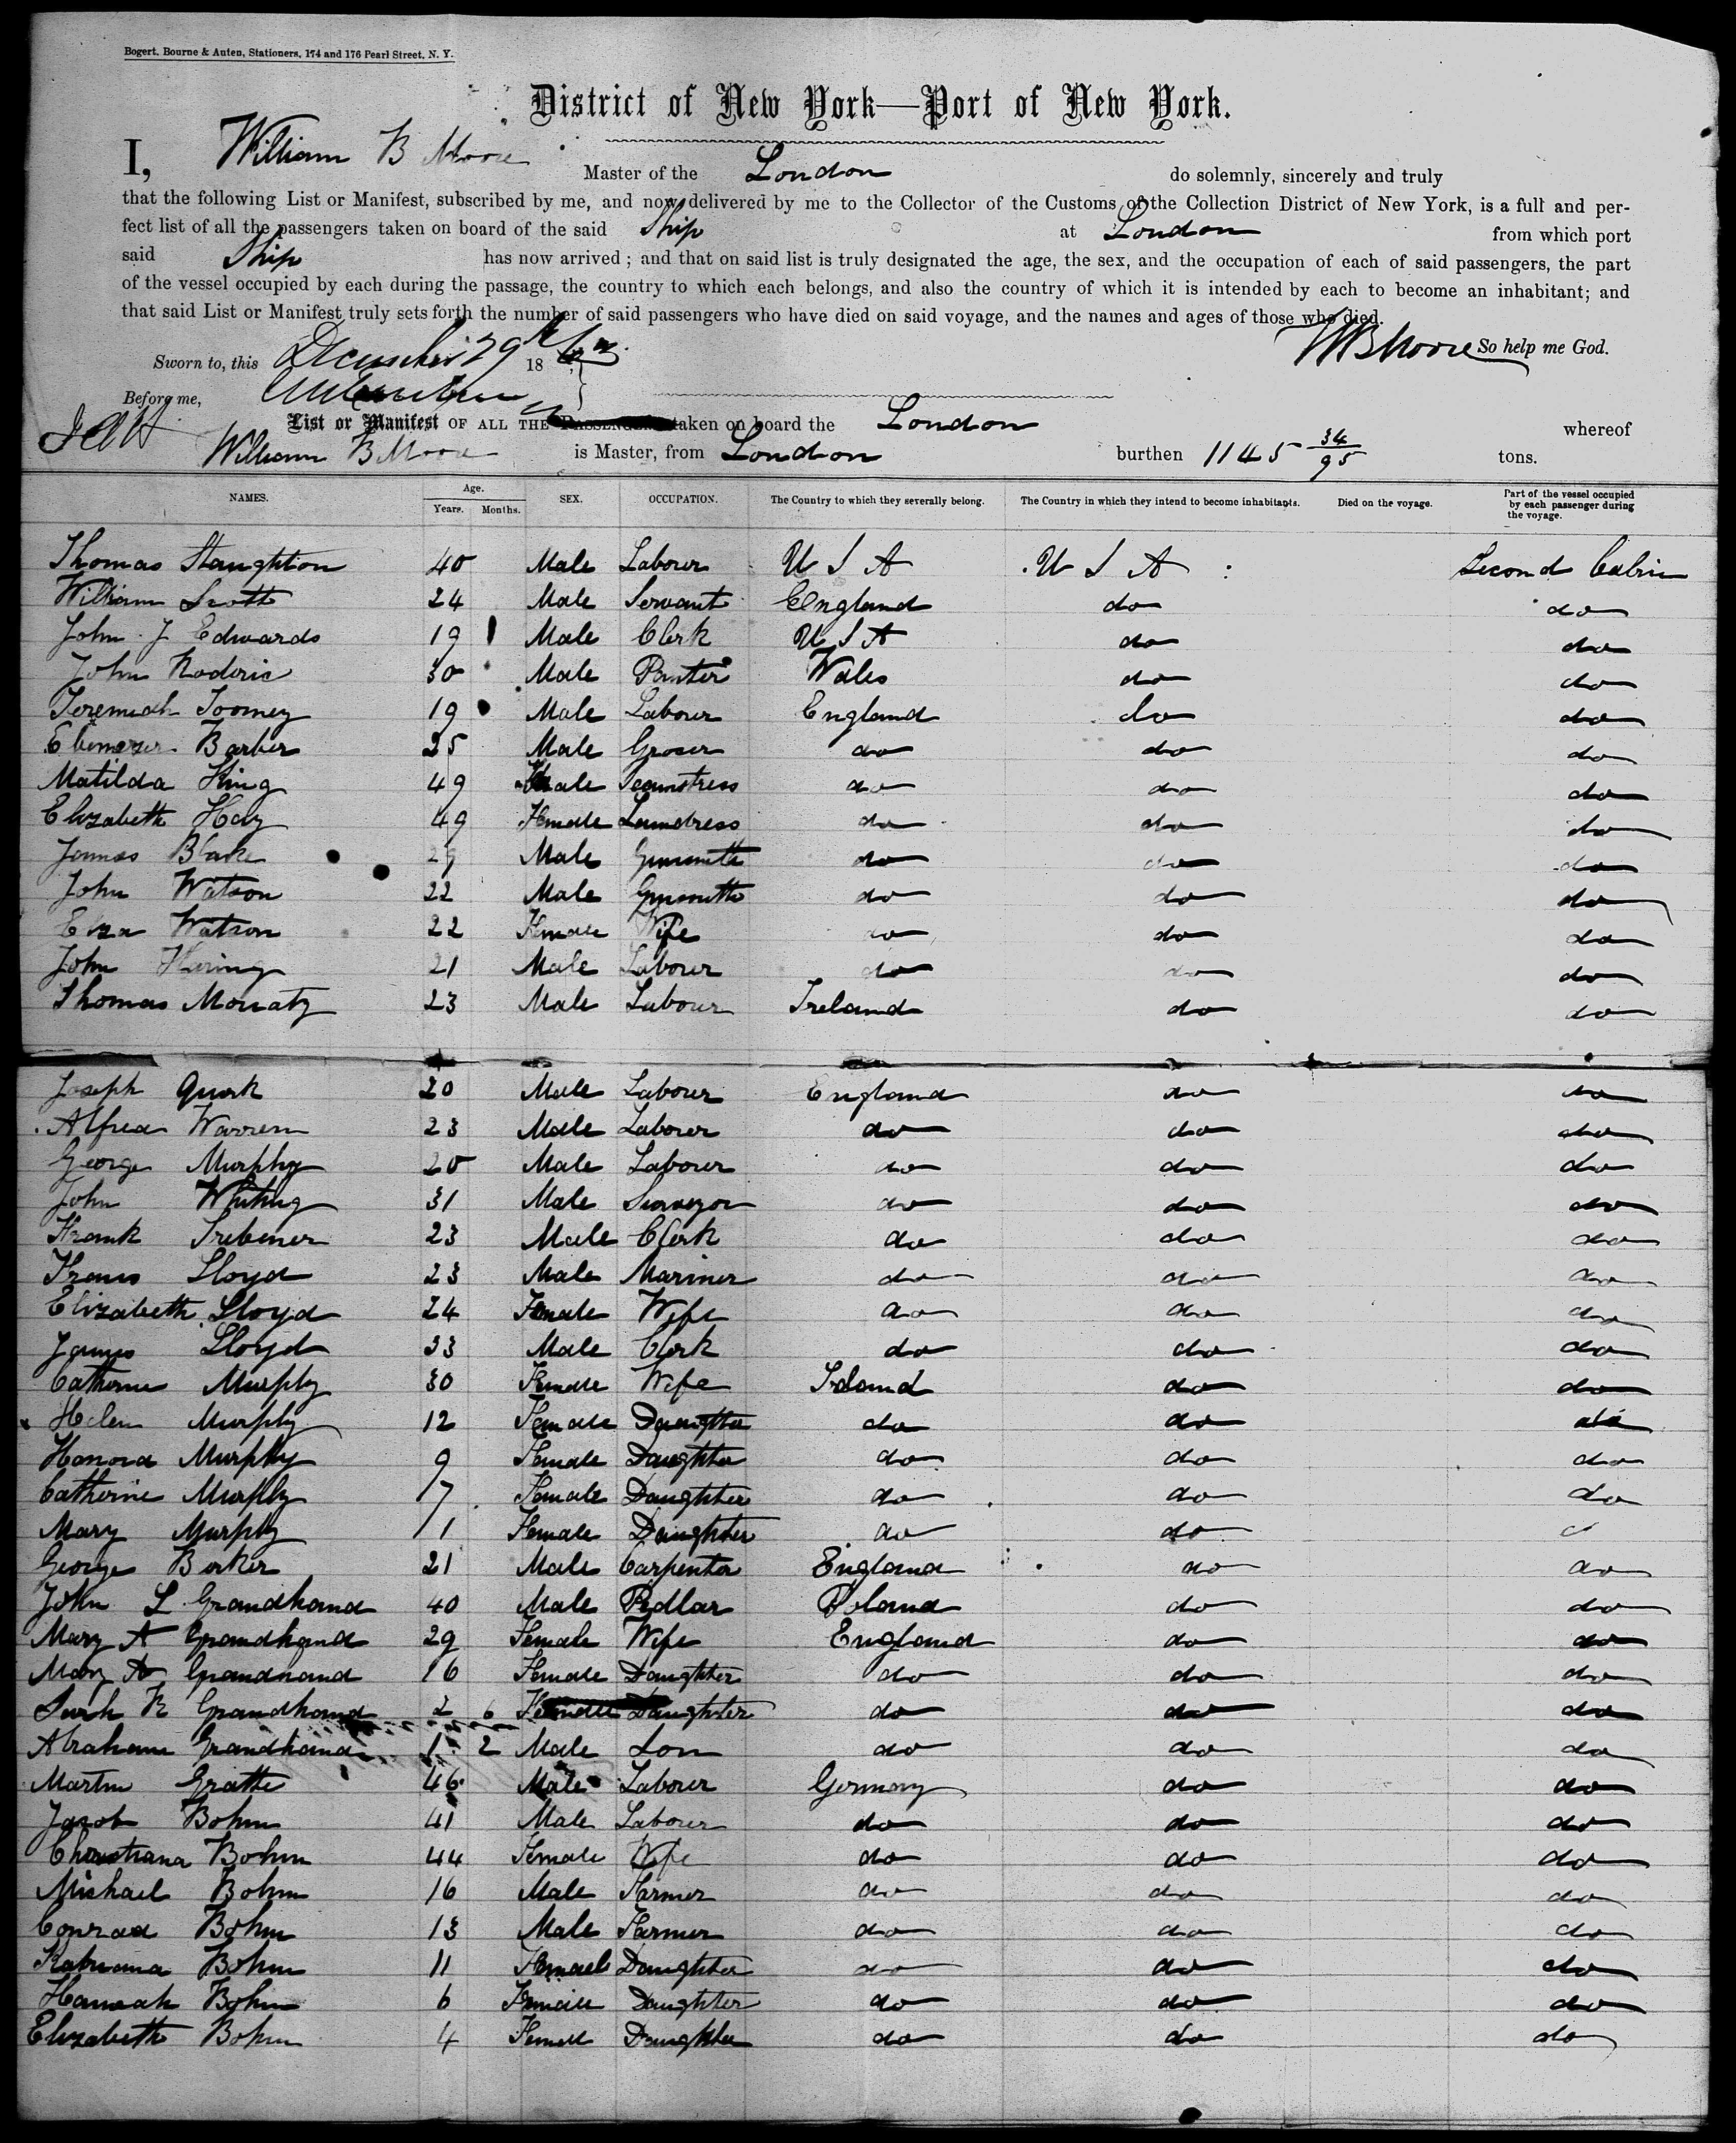 Bogert, Bourne & Auten, Stationers, 174 and 176 Pearl Street, N. Y.
District of New York—Port of New York.
I, William B Moore Master of the London do solemnly, sincerely and truly
that the following List or Manifest, subscribed by me, and now delivered by me to the Collector of the Customs of the Collection District of New York, is a full and per-
fect list of all the passengers taken on board of the said Ship at London from which port
said Ship has now arrived; and that on said list is truly designated the age, the sex, and the occupation of each of said passengers, the part
of the vessel occupied by each during the passage, the country to which each belongs, and also the country of which it is intended by each to become an inhabitant; and
that said List or Manifest truly sets forth the number of said passengers who have died on said voyage, and the names and ages of those who died.
WB Moore So help me God.
Sworn to, this December 29th 18
Before me,
List or Manifest OF ALL THE PASSENGERS taken on board the London whereof
William B Moore is Master, from London burthen 1145 34/95 tons.
NAMES. Age. Years. Months. SEX. OCCUPATION. The Country to which they severally belong. The Country in which they intend to become inhabitants. Died on the voyage. Part of the vessel occupied by each passenger during the voyage.
Thomas Staughton 40 Male Labourer U S A U S A Second Cabin
William Scott 24 Male Servant England do do
John J Edwards 19 Male Clerk U S A do do
John Roderic 30 Male Painter Wales do do
Jeremiah Toomey 19 Male Labourer England do do
Ebenezer Barber 25 Male Grocer do do do
Matilda King 49 Female Seamstress do do do
Elizabeth Hay 49 Female Laundress do do do
James Blake 27 Male Gunsmith do do do
John Watson 22 Male Gunsmith do do do
Eliza Watson 22 Female Wife do do do
John Haring 21 Male Labourer do do do
Thomas Moriaty 23 Male Labourer Ireland do do
Joseph Quork 20 Male Labourer England do do
Alfred Warren 23 Male Labourer do do do
George Murphy 20 Male Labourer do do do
John Whiting 31 Male Surveyor do do do
Frank Trebener 23 Male Clerk do do do
Frans Lloyd 23 Male Mariner do do do
Elizabeth Lloyd 24 Female Wife do do do
James Lloyd 33 Male Clerk do do do
Catherine Murphy 30 Female Wife Ireland do do
Helen Murphy 12 Female Daughter do do do
Honora Murphy 9 Female Daughter do do do
Catherine Murphy 7 Female Daughter do do do
Mary Murphy 1 Female Daughter do do
George Barker 21 Male Carpenter England do do
John L Grandhand 40 Male Pedlar Poland do do
Mary A Grandhand 29 Female Wife England do do
Mary A Grandhand 16 Female Daughter do do do
Sarah R Grandhand 2 6 Female Daughter do do do
Abraham Grandhand 1 2 Male Son do do do
Martin Gratte 46 Male Labourer Germany do do
Jacob Bohm 41 Male Labourer do do do
Christiana Bohm 44 Female Wife do do do
Michael Bohm 16 Male Farmer do do do
Conrad Bohm 13 Male Farmer do do do
Katriana Bohm 11 Female Daughter do do do
Hannah Bohm 6 Female Daughter do do do
Elizabeth Bohm 4 Female Daughter do do do